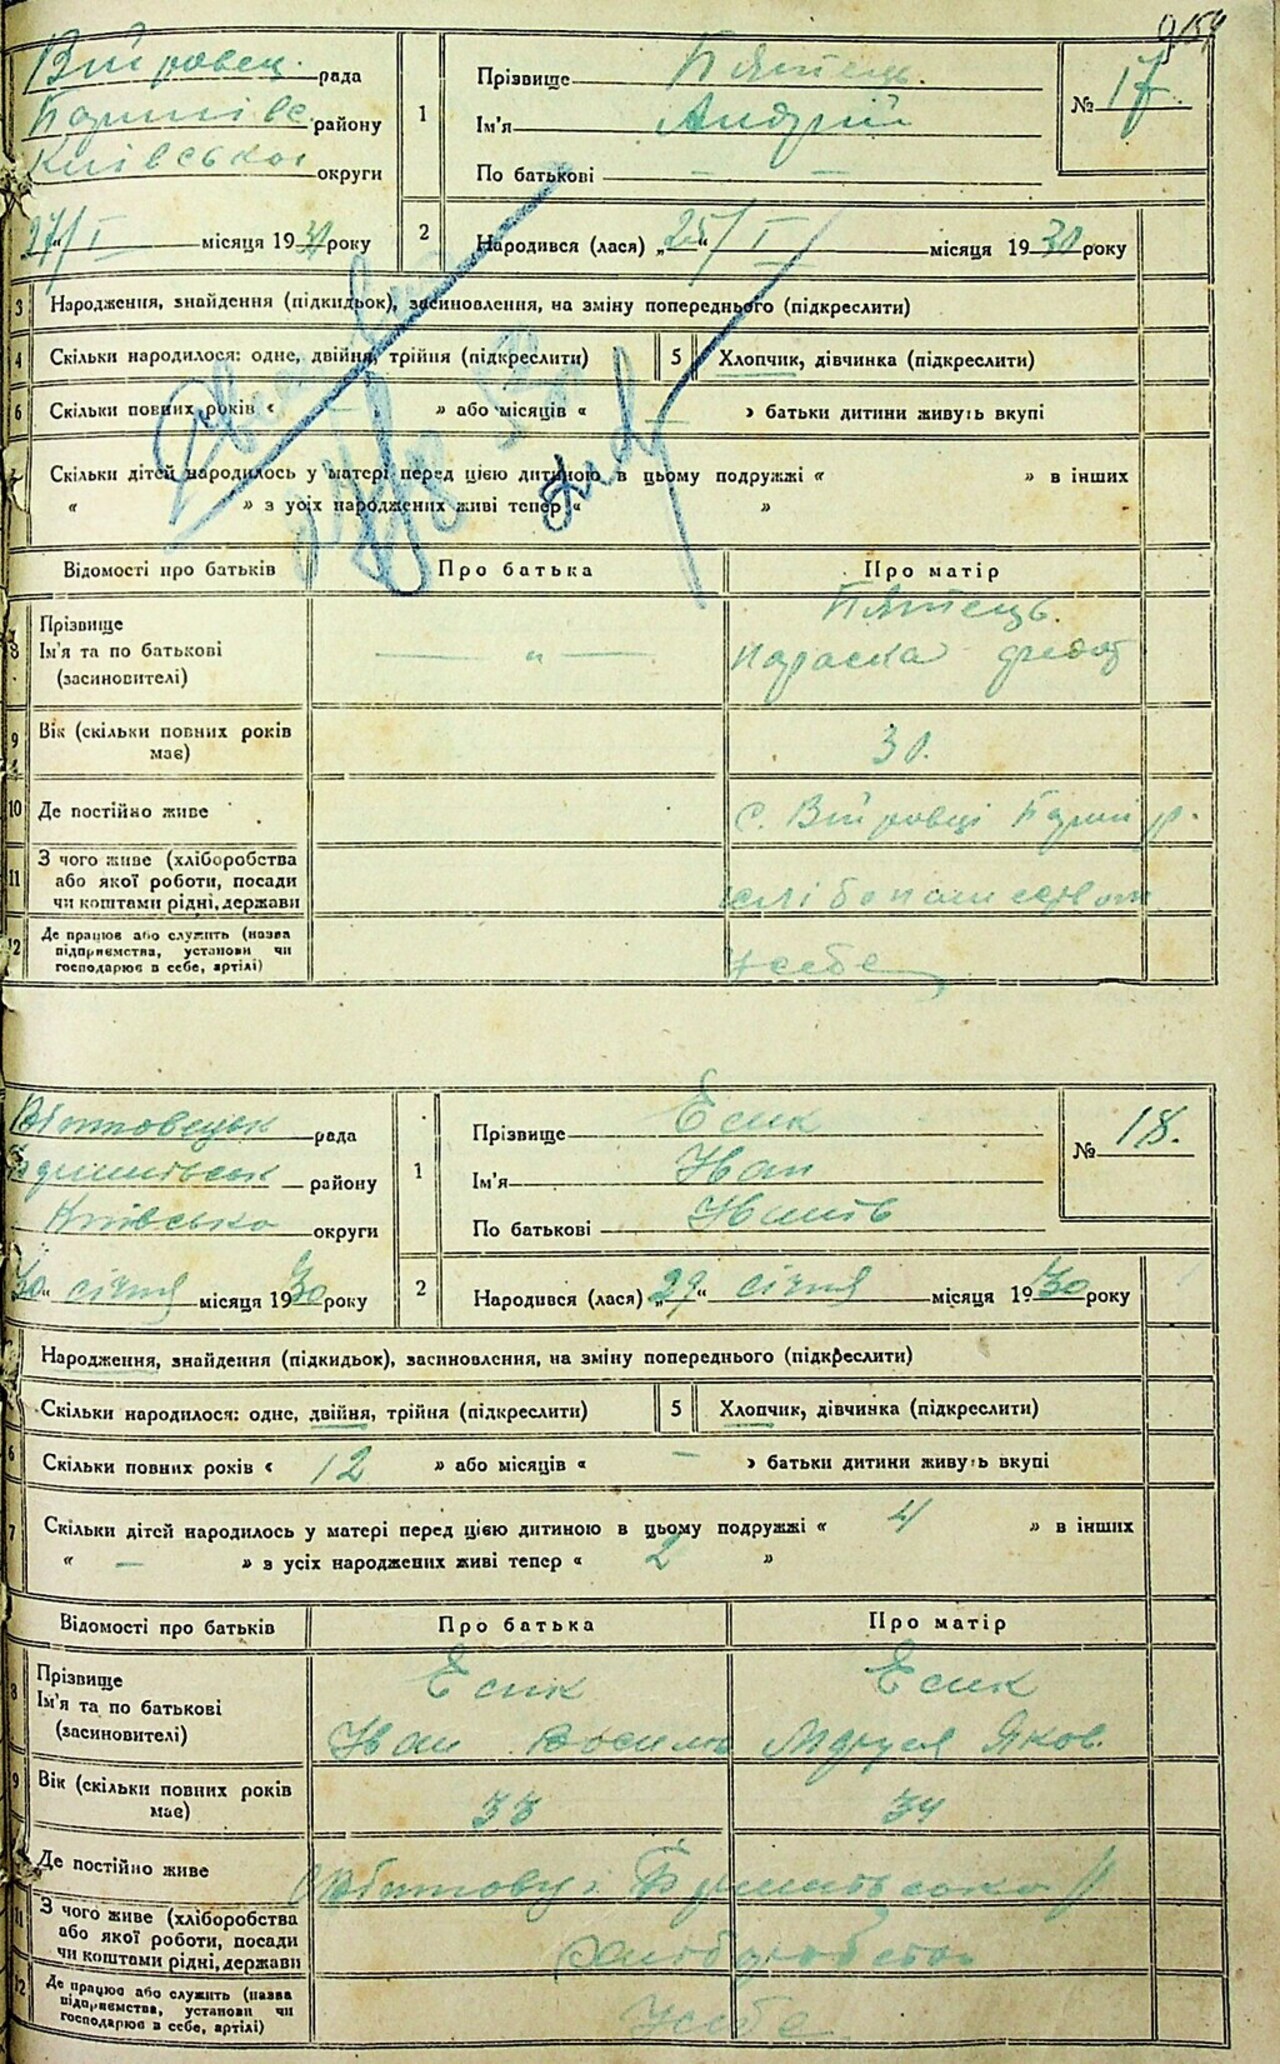 154
Війтовец. рада
Баришівс. району
Київської округи
27/I місяця 1930 року
1
Прізвище Пятець.
Ім'я Андрій
По батькові — —
№ 17.
2
Народився (лася) „25“ / I місяця 1930 року
3 Народження, знайдення (підкидьок), засиновлення, на зміну попереднього (підкреслити)
4 Скільки народилося: одне, двійня, трійня (підкреслити) 5 Хлопчик, дівчинка (підкреслити)
6 Скільки повних років « — » або місяців « — » батьки дитини живуть вкупі
Скільки дітей народилось у матері перед цією дитиною в цьому подружжі « » в інших
« » з усіх народжених живі тепер « »
Відомості про батьків Про батька Про матір
8 Прізвище
Ім'я та по батькові
(засиновителі)
— „ —
Пятець.
Параска Федот
9 Вік (скільки повних років
має)
30.
10 Де постійно живе
с. Війтовці Бариш р.
11 З чого живе (хліборобства
або якої роботи, посади
чи коштами рідні, держави
хлібопашеством
12 Де працює або служить (назва
підприємства, установи чи
господарює в себе, артілі)
у себе
Війтовецьк рада
Баришівськ району
Київсько округи
30 “ січня місяця 1930 року
1
Прізвище Есик
Ім'я Иван
По батькові Иванів
№ 18.
2
Народився (лася) „29“ січня місяця 1930 року
Народження, знайдення (підкидьок), засиновлення, на зміну попереднього (підкреслити)
Скільки народилося: одне, двійня, трійня (підкреслити) 5 Хлопчик, дівчинка (підкреслити)
6 Скільки повних років « 12 » або місяців « — » батьки дитини живуть вкупі
7 Скільки дітей народилось у матері перед цією дитиною в цьому подружжі « 4 » в інших
« — » з усіх народжених живі тепер « 2 »
Відомості про батьків Про батька Про матір
8 Прізвище
Ім'я та по батькові
(засиновителі)
Есик Есик
Иван Василів Яков.
9 Вік (скільки повних років
має)
33 34
Де постійно живе
Війтовці Баришівського р
11 З чого живе (хліборобства
або якої роботи, посади
чи коштами рідні, держави
12 Де працює або служить (назва
підприємства, установи чи
господарює в себе, артілі)
У себе